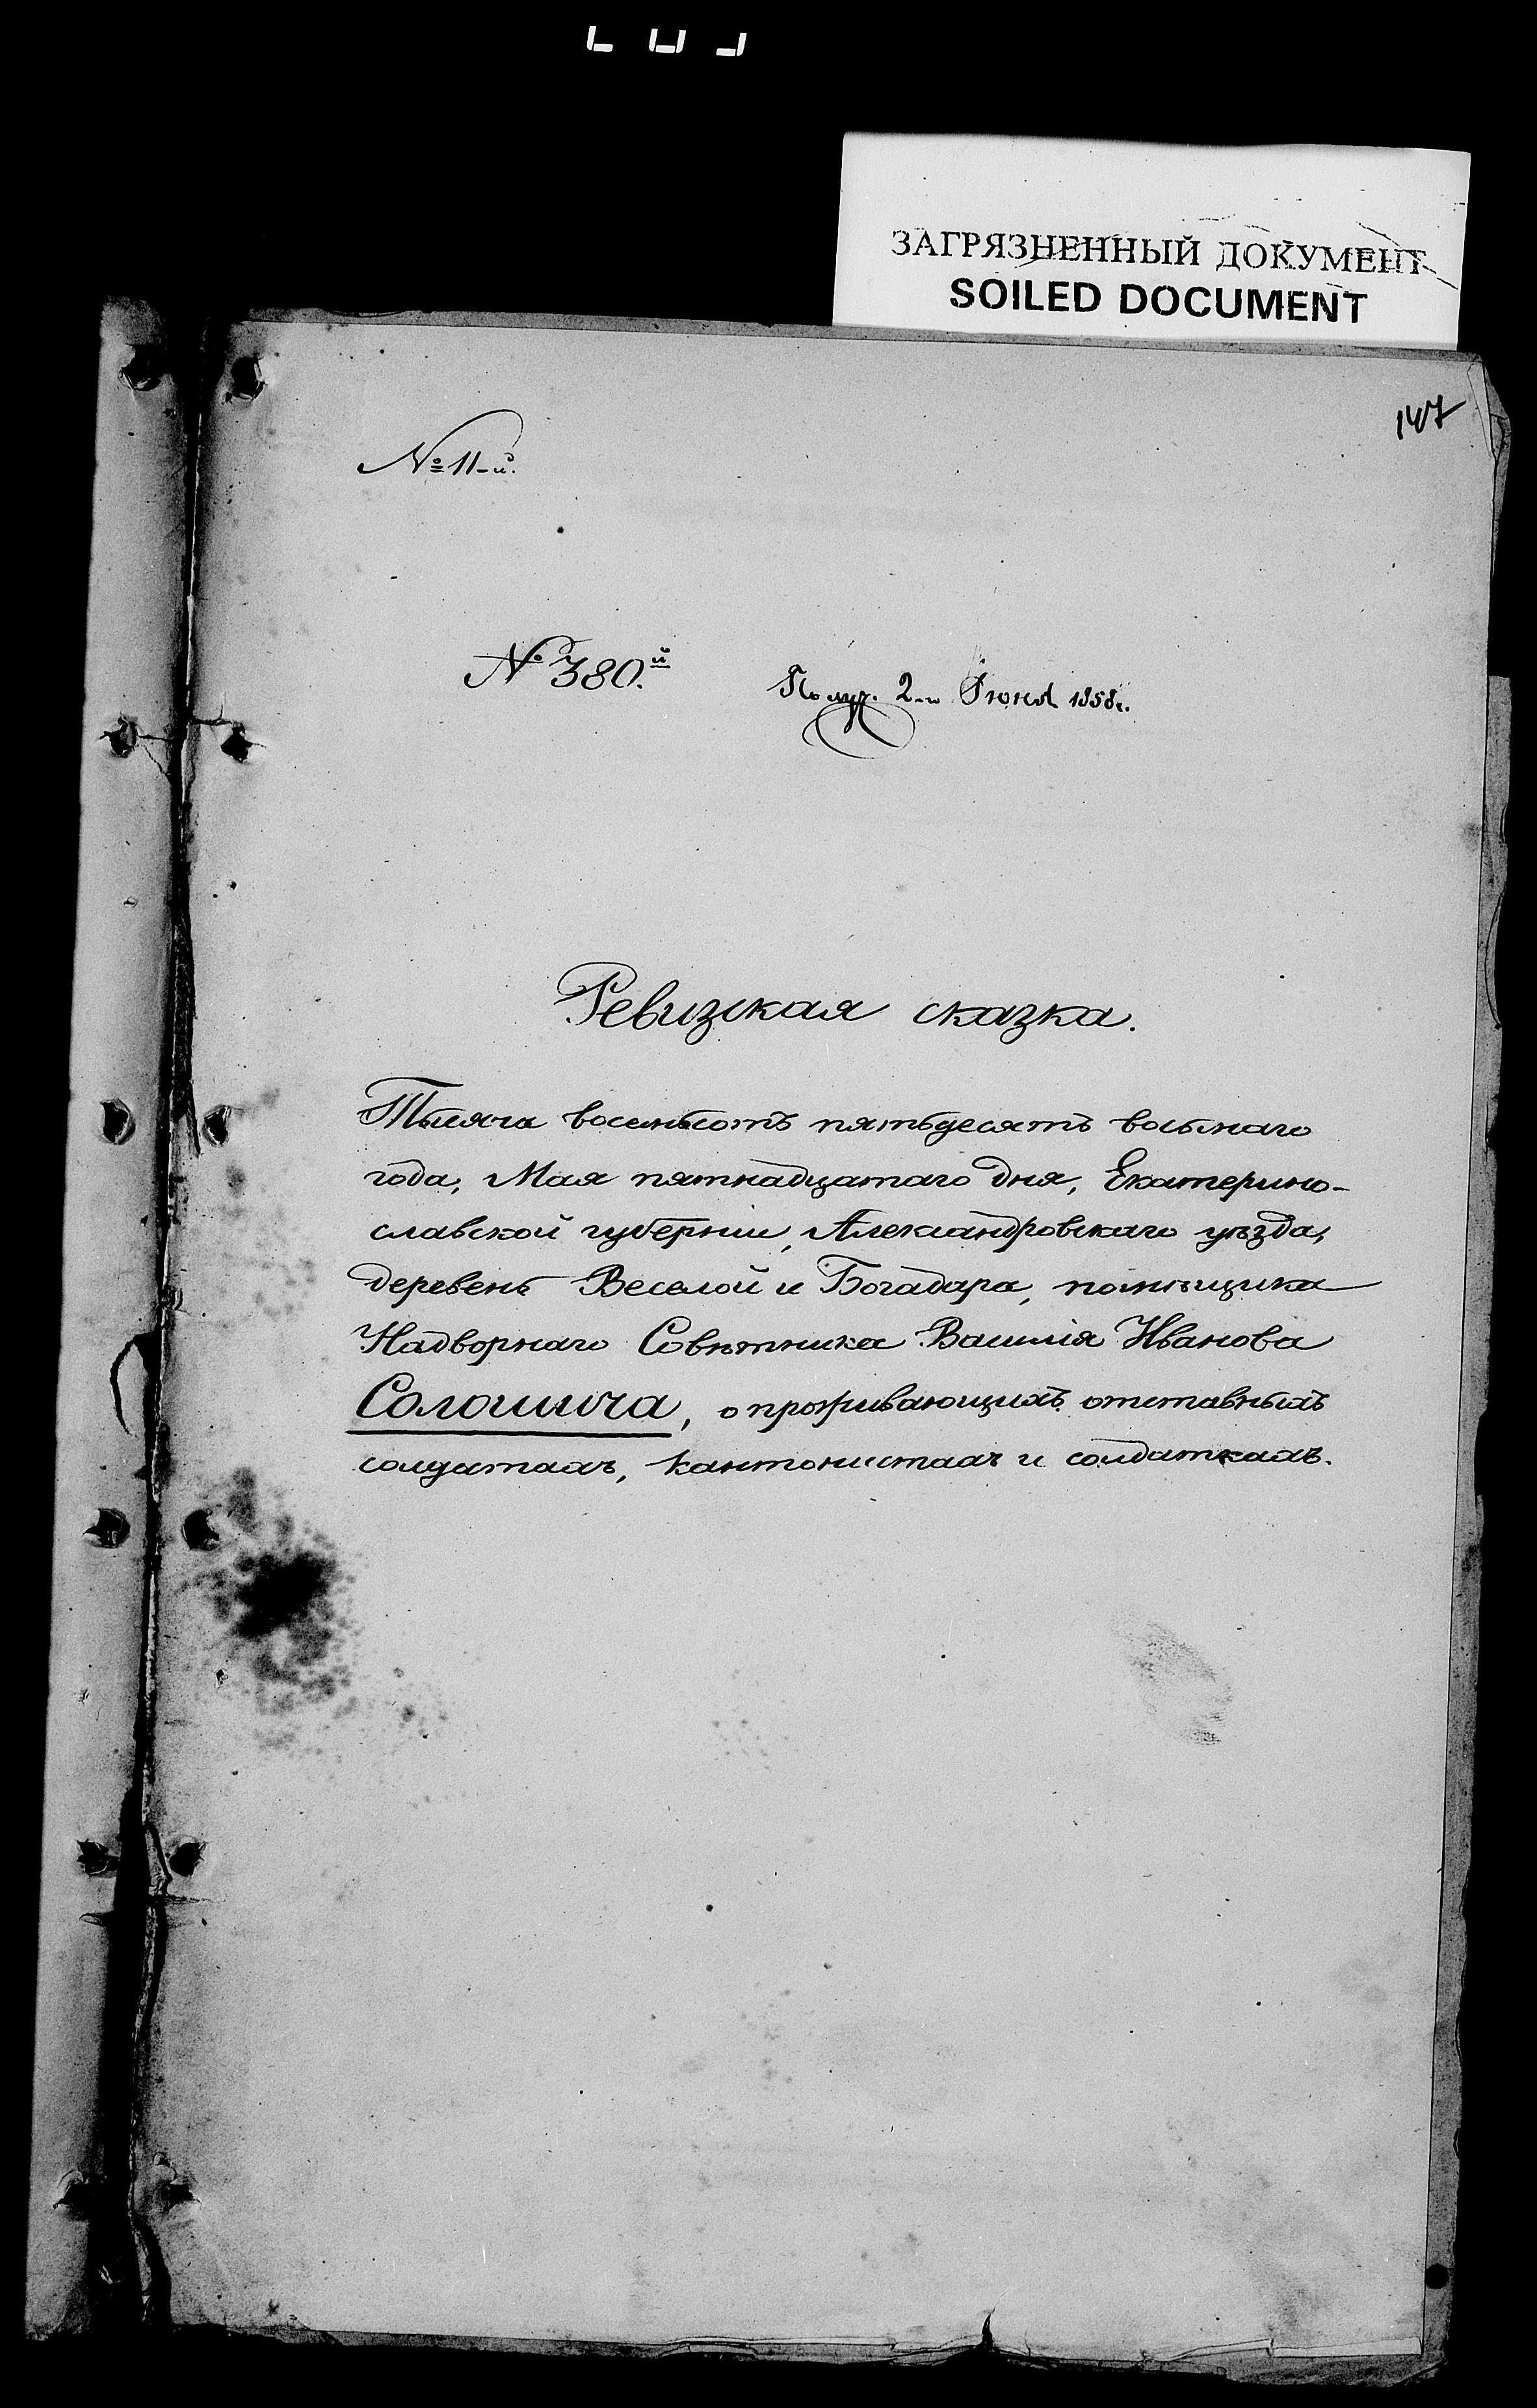 ЗАГРЯЗНЕННЫЙ ДОКУМЕНТ
SOILED DOCUMENT
147
№ 11-й.
№ 380.й
Получ. 2-го Июня 1858 г.
Ревизская сказка.
Тысяча восемьсотъ пятьдесятъ восьмаго
года, Мая пятнадцатаго дня, Екатерино-
славской губерніи, Александровскаго уѣзда,
деревень Веселой и Богадара, помѣщика
Надворнаго Совѣтника Василія Иванова
Солошича, о проживающихъ отставныхъ
солдатахъ, кантонистахъ и солдаткахъ.